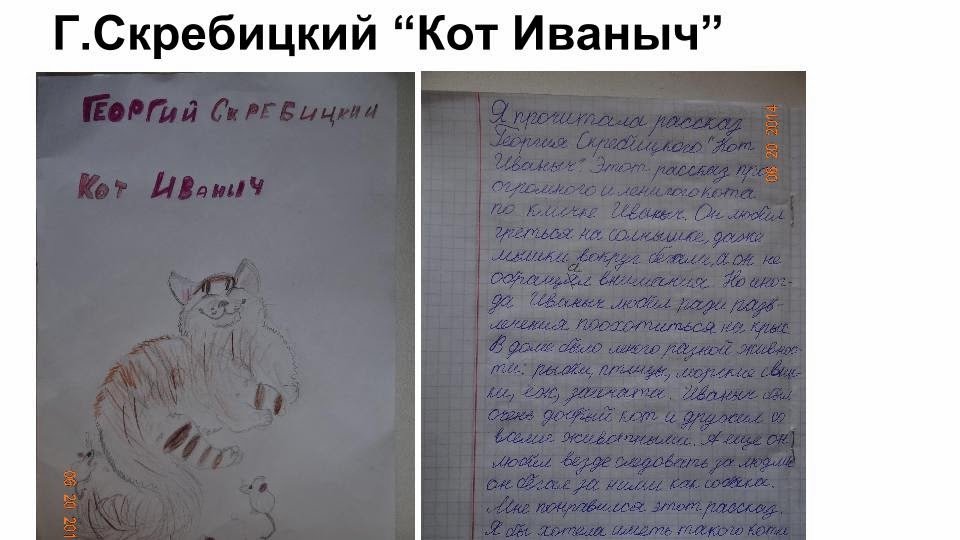 Г.Скребицкий “Кот Иваныч”
Георгий Скребицкий
Кот Иваныч
06 20 201
Я прочитала рассказ
Георгия Скребицкого "Кот
Иваныч". Этот рассказ про
огромного и ленивого кота
по кличке Иваныч. Он любил
греться на солнышке, даже
мышки вокруг бегали, а он не
обращал внимания. Но иног-
да Иваныч любил ради развл-
лечения поохотиться на крыс.
В доме было много разной живнос-
ти: рыбки, птицы, морские свин-
ки, ёж, зайчата. Иваныч был
очень добрый кот и дружил со
всеми животными. А еще он
любил везде следовать за людьми
он бегал за ними как собака.
Мне понравился этот рассказ.
Я бы хотела иметь такого кота
06 20 2014